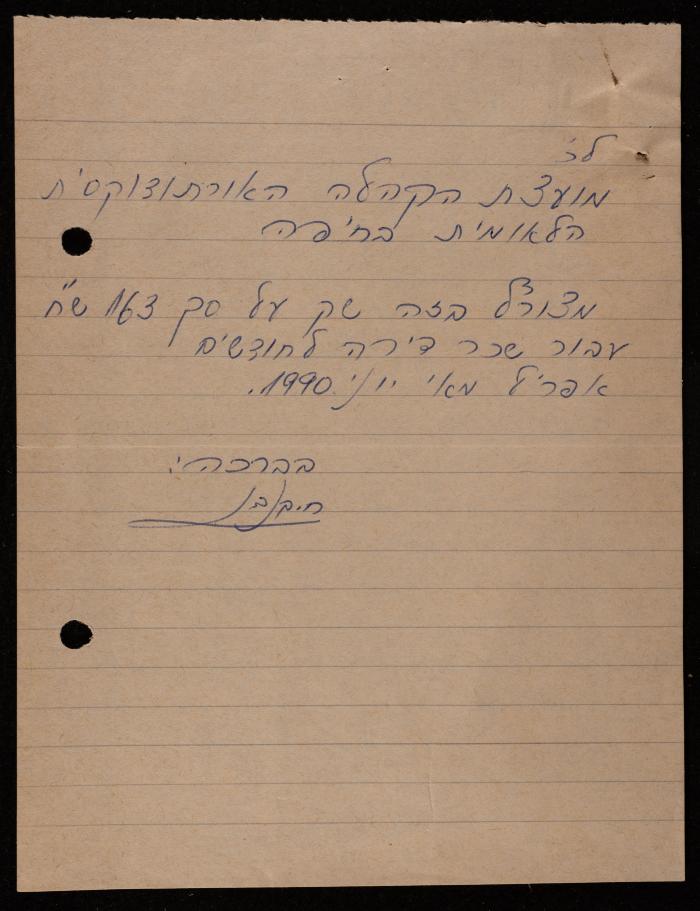 לכ'
מועצת הקהלה האורתודוקסית
הלאומית בחיפה
מצורף בזה שק על סך 163 ש"ח
עבור שכר דירה לחודשים
אפריל מאי יוני 1990.
בברכה: